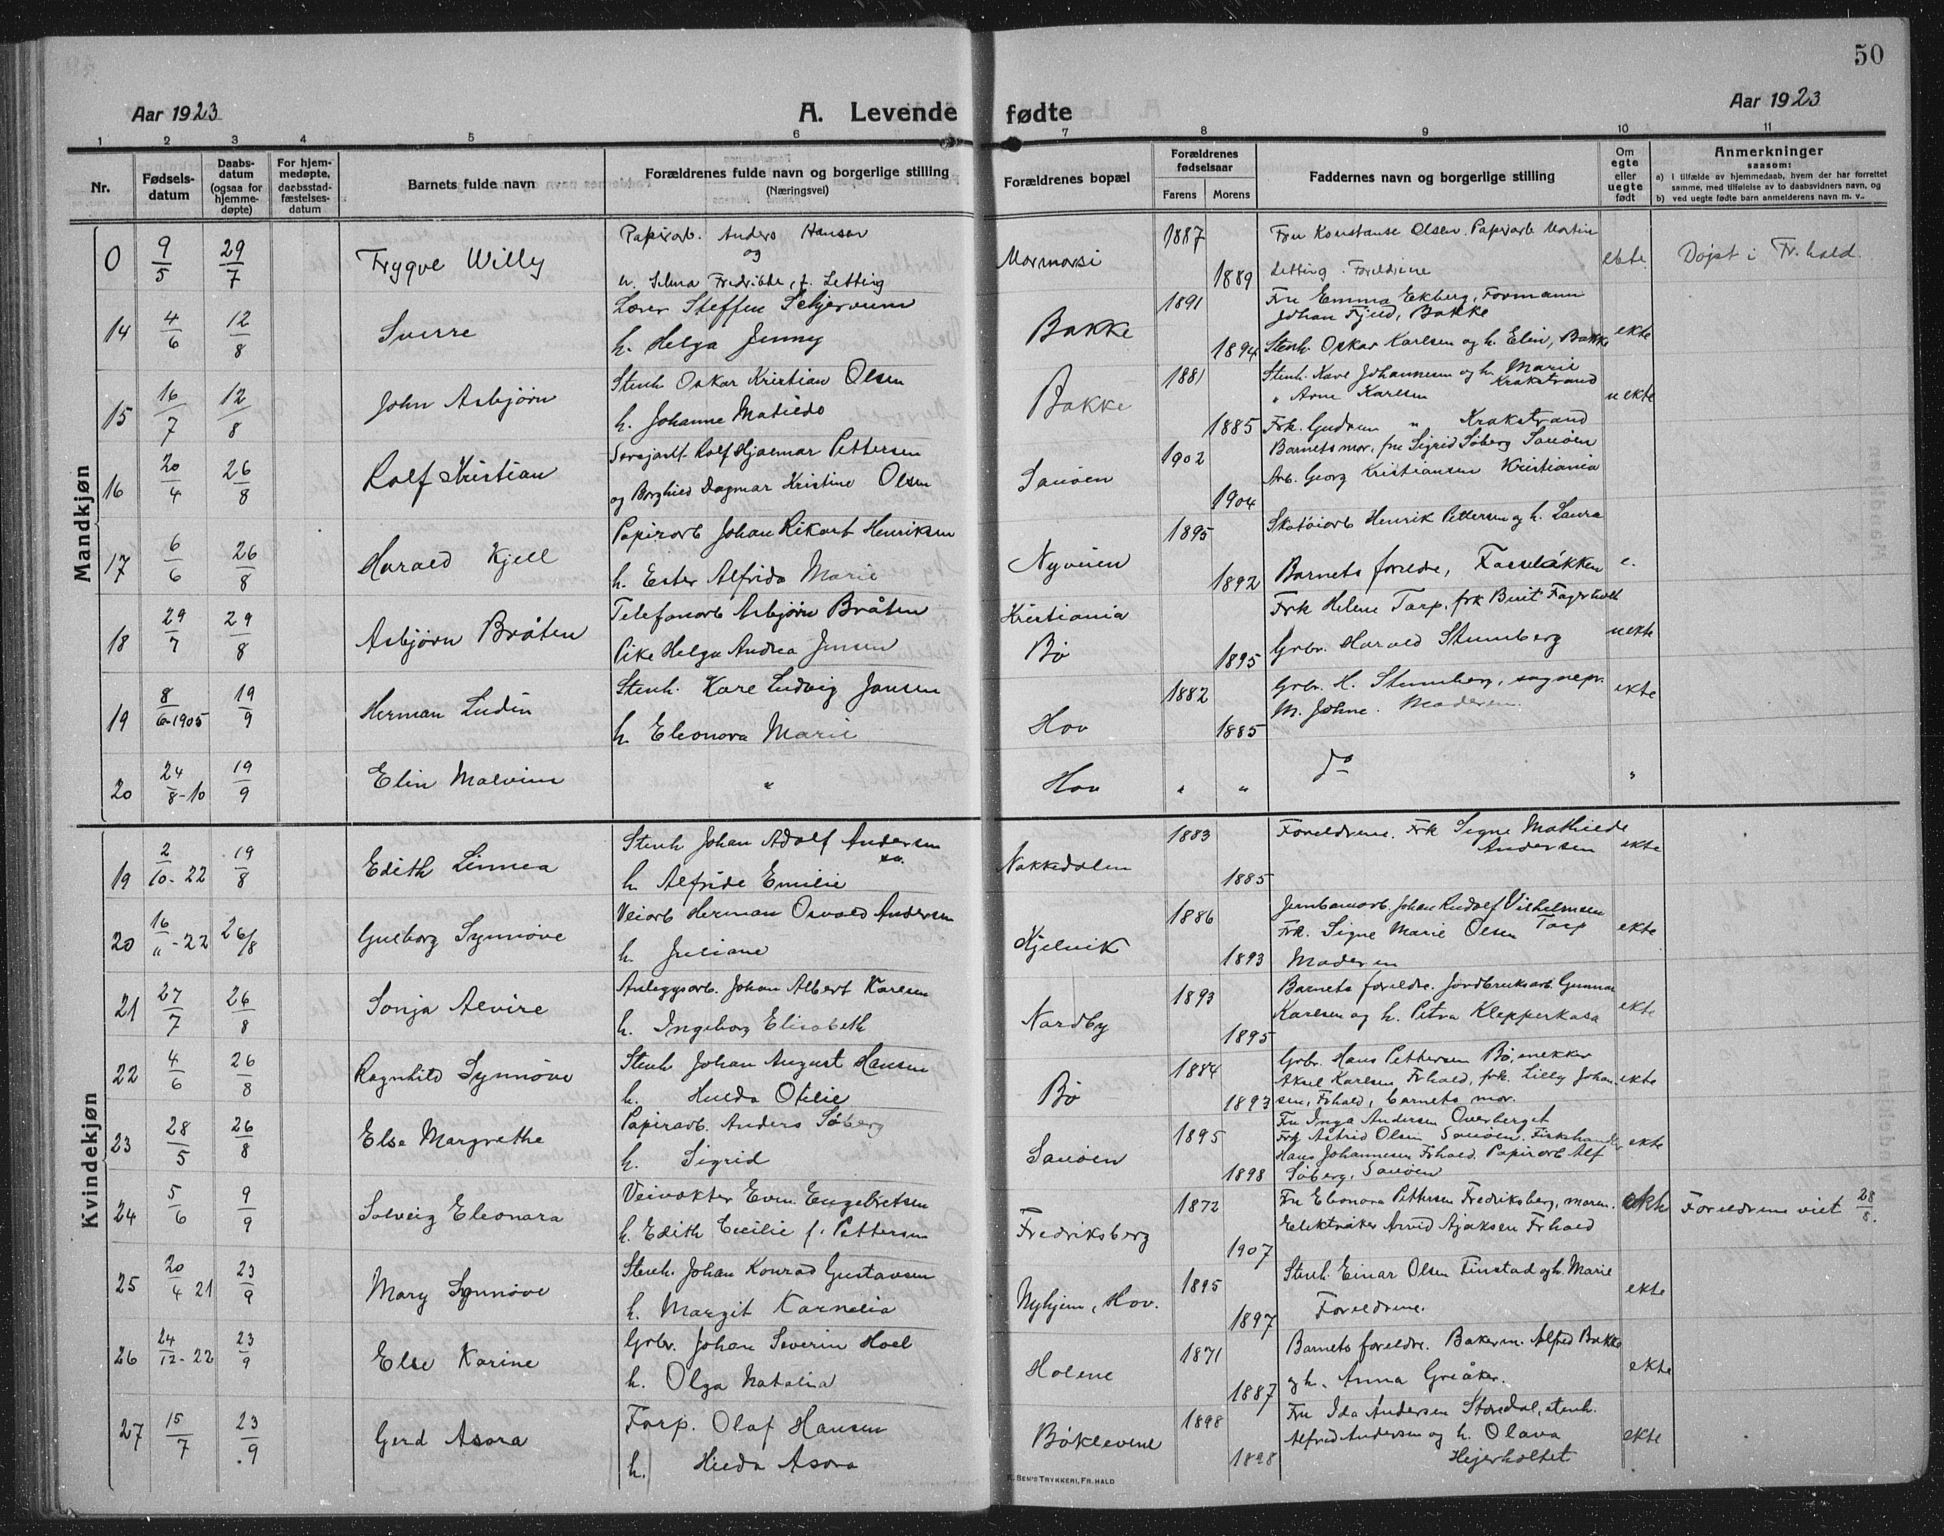 50
Aar 1923
A. Levende fødte
Aar 1923
1 2 3 4 5 6 7 8 9 10 11
Nr.
Fødsels-
datum
Daabs-
datum
(ogsaa for
hjemme-
døpte)
For hjem-
medøpte,
daabsstad-
fæstelses-
datum
Barnets fulde navn
Forældrenes fulde navn og borgerlige stilling
(Næringsvei)
Forældrenes bopæl
Forældrenes
fødselsaar
Farens Morens
Faddernes navn og borgerlige stilling
Om
egte
eller
uegte
født
Anmerkninger
saasom:
a) I tilfælde av hjemmedaab, hvem der har forrettet
samme, med tilføielse av to daabsvidners navn, og
b) ved uegte fødte barn anmelderens navn m. v..
Mandkjøn
0 9/5 29/7 Trygve Willy
Papirarb. Anders Hansen
og
h. Selma Fredrikke, f. Letting
1887
1889
Fru Konstanse Olsen. Papirarb Martin
Letting. Foreldrene
ekte Døpt i Fr.hald.
14 4/6 12/8 Sverre
Lærer Steffen
h. Helga Jenny
Bakke 1891
1894
Fru Emma Ekberg, Formann
Johan Fjeld, Bakke
Stenh. Oskar Karlsen og h. Elin, Bakke
ekte
15 16/7 12/8 John Asbjørn
Stenh Oskar Kristian Olsen
h. Johanne Matilde
Bakke 1881
1885
Stenh. Karl Johannesen og h. Marie
Krakstrand
" Arne Karlsen
Frk. Gudrun " Krakstrand
uekte
16 20/4 26/8 Rolf Kristian
Rolf Hjalmar Pettersen
og Borghild Dagmar Kristine Olsen
Sauøen 1902
1904
Barnets mor, fru Sigrid Søberg Sauøen
Arb. Georg Kristiansen Kristiania
17 6/6 26/8 Harald Kjell
Papirarb Johan Rikart Henriksen
h. Ester Alfrida Marie
Nyveien 1895
1892
Skotøiarb Henrik Pettersen og h. Laura
Barnets foreldre,
e.
18 29/7 29/8 Asbjørn Bråten
Telefonarb Asbjørn Bråten
Pike Helga Andrea Jensen
Kristiania
Bø 1895
Frk Helene Tarp, frk Berit Fagerholt
Grbr. Harald Stumberg
uekte
19 8/6-1905 19/9 Herman Ludin
Stenh. Karl Ludvig Jansen
h. Eleonora Marie
Hov 1882
1885
Grbr. H. Stumberg, sognepr.
M. Johne. Moderen
ekte
20 24/8-10 19/9 Elin Malvine
"
Hov " " do "
Kvindekjøn
19 2/10-22 19/8 Edith Linnea
Stenh Johan Adolf Andersen
h Alfride Emilie
Nakkedalen 1883
1885
Foreldrene. Frk Signe Mathilde
Andersen
ekte
20 16/11-22 26/8 Gulborg Synnøve
Veiarb Herman Osvald Andersen
h. Juliane
Kjelvik 1886
1893
Jernbanearb. Johan Rudolf Vilhelmsen
Frk. Signe Marie Olsen Torp
Moderen
ekte
21 27/7 26/8 Sonja Alvire
Anleggsarb. Johan Albert Karlsen
h. Ingeborg Elisabeth
Nordby 1893
1895
Barnets foreldre. Jordbruksarb Gunnar
Karlsen og h. Petra Klepperkasa
ekte
22 4/6 26/8 Ragnhild Synnøve
Stenh Johan August Hansen
h. Hulda Otilie
Bø 1884
1893
Grbr. Hans Pettersen Bø,
Aksel Karlsen Frhald, frk. Lilly Johan-
sen, Frhald, barnets mor.
ekte
23 28/5 26/8 Else Margrethe
Papirarb. Anders Søberg
h. Sigrid
Sauøen 1895
1898
Fru Inga Andersen Overberget
Frk Astrid Olsen Sauøen. Fiskhandler
Hans Johannesen Frhald. Papirarb Alf
Søberg, Sauøen
ekte
24 5/6 9/9 Solveig Eleonara
Veivokter Even Engebretsen
h. Edith Emilie f. Pettersen
Fredriksberg 1872
1907
Fru Eleonora Pettersen Fredriksberg, moren.
Arvid Ajaksen Frhald
ekte Foreldrene viet 28/8.
25 20/4 21 23/9 Mary Synnøve
Stenh. Johan Konrad Gustavsen
h. Margit Karnelia
Nyhjem, Hov. 1895
1897
Stenh. Einar Olsen Finstad og h. Marie
Foreldrene.
ekte
26 24/12-22 23/9 Else Karine
Grbr. Johan Severin Hoel
h. Olga Natalia
Holene 1871
1887
Barnets foreldre. Bakerm. Alfred Bakke
og h. Anna Greåker.
ekte
27 15/7 23/9 Gerd Asora
Forp. Olaf Hansen
h. Hilda Asora
Bøklevene 1898
1898
Fru Ida Andersen Storedal, stenh.
Alfred Andersen og h. Olava
Hejerholtet
ekte
SEN'S TRYKKERI, FR.HALD